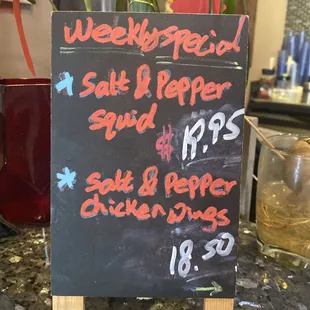 Weekly special
* Salt & Pepper
squid
$ 19.95
* Salt & Pepper
chicken wings
18.50